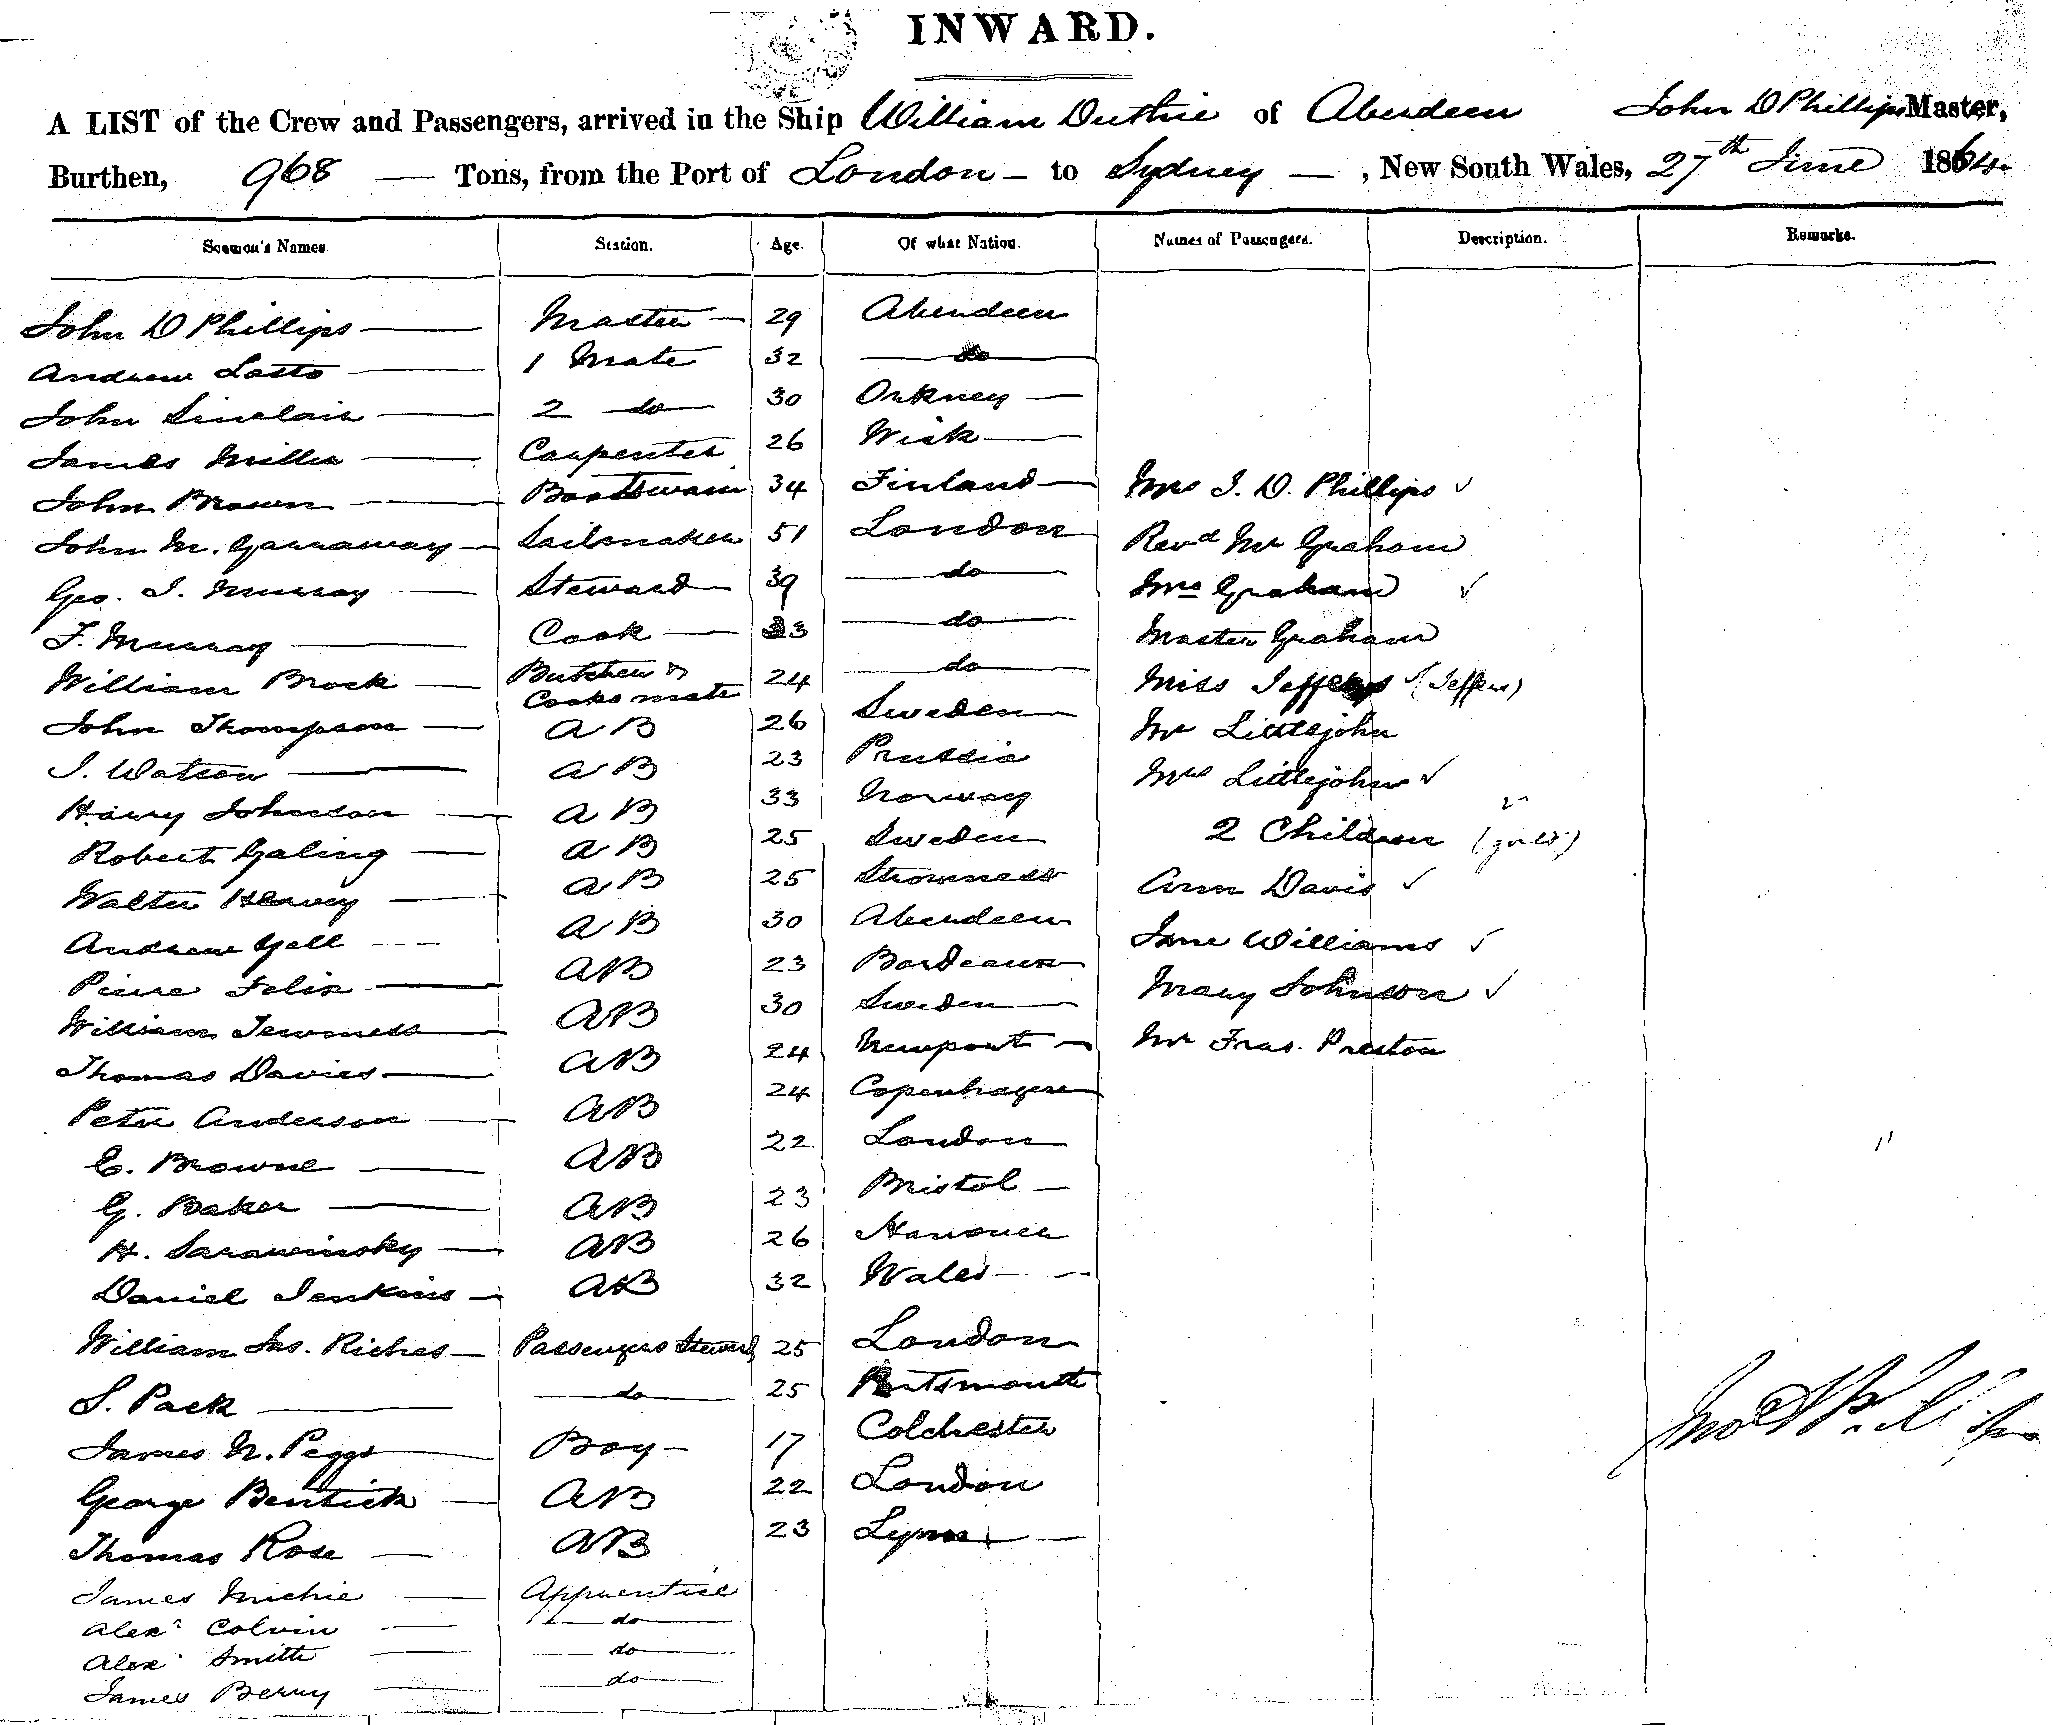 INWARD.
A LIST of the Crew and Passengers, arrived in the Ship William Duthie of Aberdeen John D Phillips Master,
Burthen, 968 — Tons, from the Port of London – to Sydney — , New South Wales, 27th June 1864.
Seamen's Names. Station. Age. Of what Nation. Names of Passengers. Description. Remarks.
John D Phillips — Master — 29 Aberdeen
Andrew Latto — 1 Mate 32 — do —
John Sinclair — 2 do — 30 Orkney —
James Miller — Carpenter 26 Wick —
John Brown — Boatswain 34 Finland — Mrs J. D. Phillips ✓
John M. Garraway — Sailmaker 51 London Revd Mr Graham
Geo. J. Murray — Steward — 39 — do — Mrs Graham ✓
F. Murray — Cook — 33 — do — Master Graham
William Brock — Butcher & Cooks mate 24 — do — Miss Jeffreys ✓ (Jeffers)
John Thompson — AB 26 Sweden Mr Littlejohn
J. Watson — AB 23 Prussia Mrs Littlejohn ✓
Harry Johnston — AB 33 Norway 2 Children (girls)
Robert Galing — AB 25 Sweden
Walter Hervey — AB 25 Stromness Ann Davis ✓
Andrew Yell — AB 30 Aberdeen Jane Williams ✓
Pierre Felix — AB 23 Bordeaux Mary Johnson ✓
William — AB 30 Sweden — Mr Fras. Preston
Thomas Davies — AB 24 Newport —
Peter Anderson — AB 24 Copenhagen
E. Browne — AB 22 London
G. Baker — AB 23 Bristol —
H. Sarawinsky — AB 26 Hanover
Daniel Jenkins — AB 32 Wales —
William Jas. Riches — Passengers Steward 25 London
S. Pack — do — 25 Portsmouth
James N. Peggs — Boy — 17 Colchester
George Bentick — AB 22 London
Thomas Rose — AB 23 Lynn —
James Michie — Apprentice
Alexr Colvin — do —
Alexr Smith — do —
James Berry — do —
Jno D Phillips